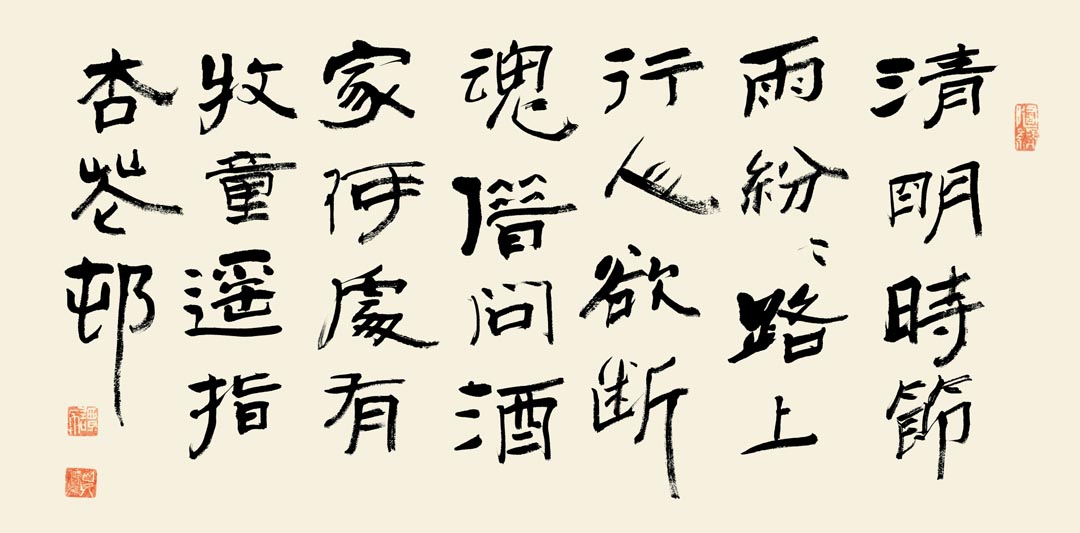 清明時節
雨紛〻路上
行人欲断
魂借問酒
家何處有
牧童遥指
杏花邨